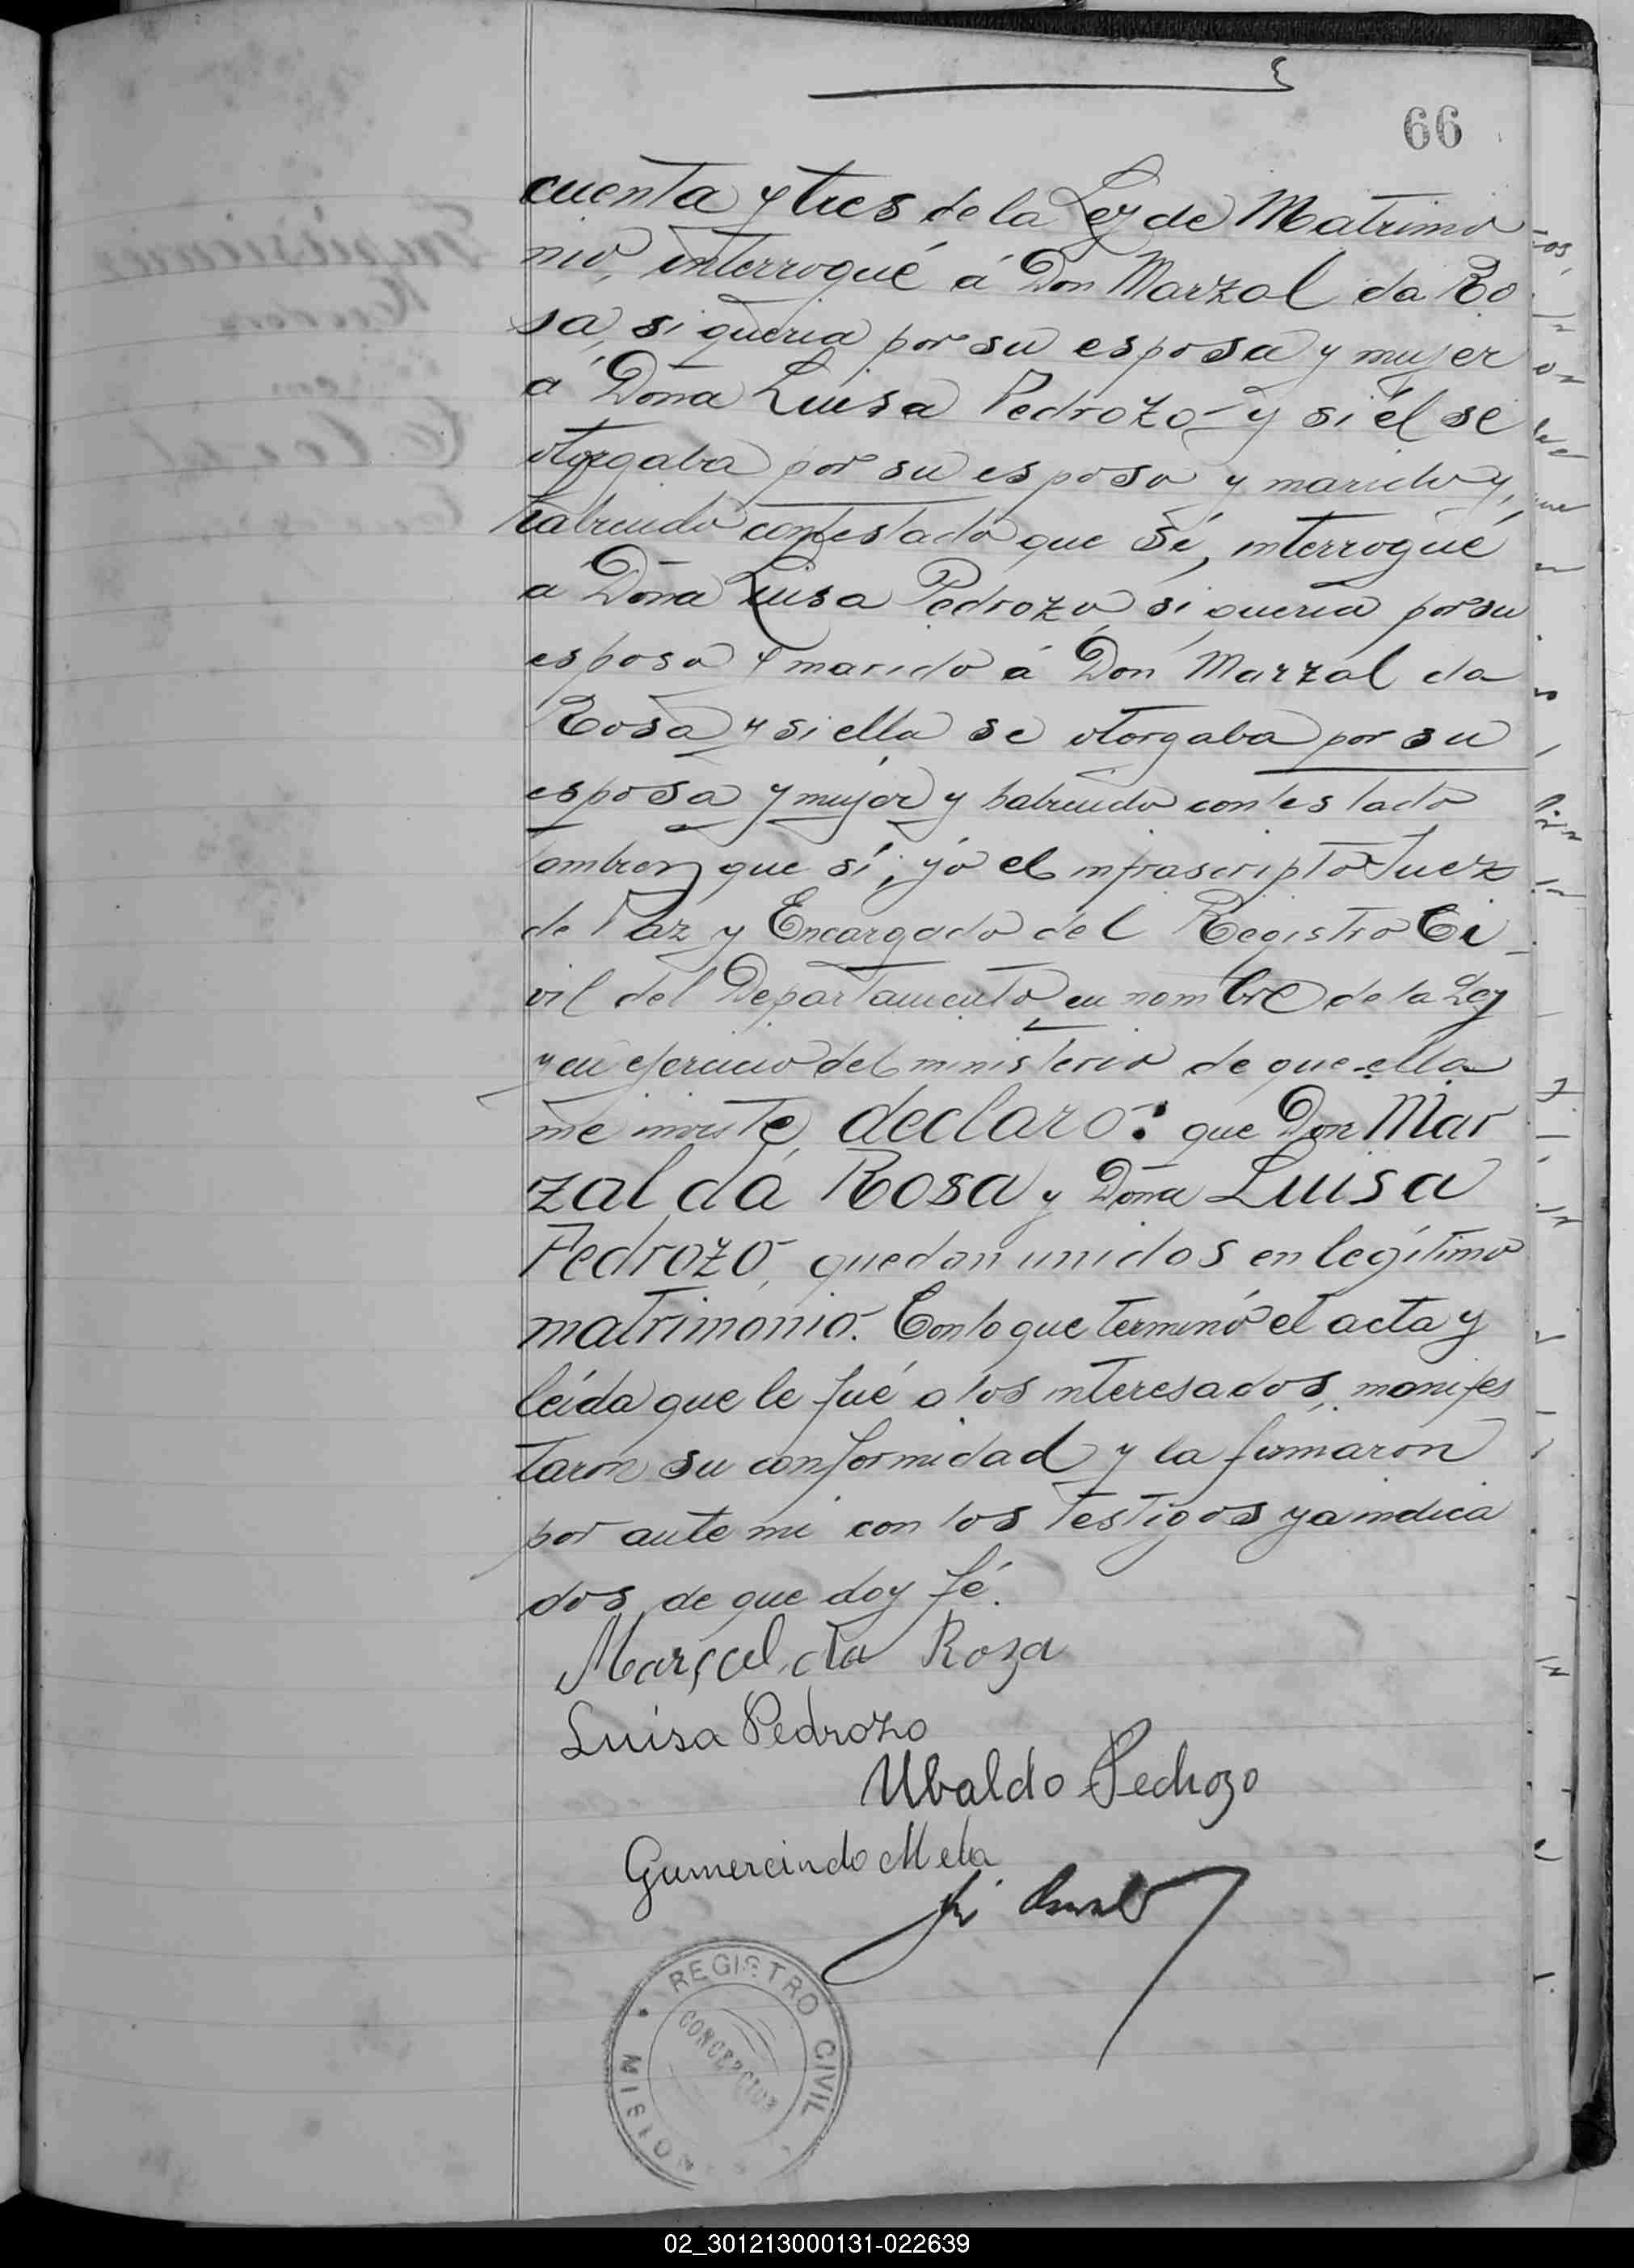 66
cuenta y tres de la Ley de Matrimo
nio, interrogué á Don Marzal da Ro
sa, si queria por su esposa y mujer
a Doña Luisa Pedrozo y si él se
otorgaba por su esposo y marido y,
habiendo contestado que Sí, interrogué
a Doña Luisa Pedrozo si queria por su
esposo y marido á Don Marzal da
Rosa y si ella se otorgaba por su
esposa y mujer y habiendo contestado
tambien que sí, yó el infrascripto Juez
de Paz y Encargado del Registro Ci
vil del Departamento en nombre de la Ley
y en ejercicio del ministerio de que ella
me inviste, declaro: que Don Mar
zal da Rosa y Doña Luisa
Pedrozo, quedan unidos en legítimo
matrimonio. Con lo que terminó el acta y
leida que le fué a los interesados, manifes
taron su conformidad y la firmaron
por ante mi con los testigos ya indica
dos de que doy fé.
Marçal da Roza
Luisa Pedrozo
Ubaldo Pedrozo
Gumercindo Mela
REGISTRO CIVIL
CONCEPCION
MISIONES
02_301213000131-022639